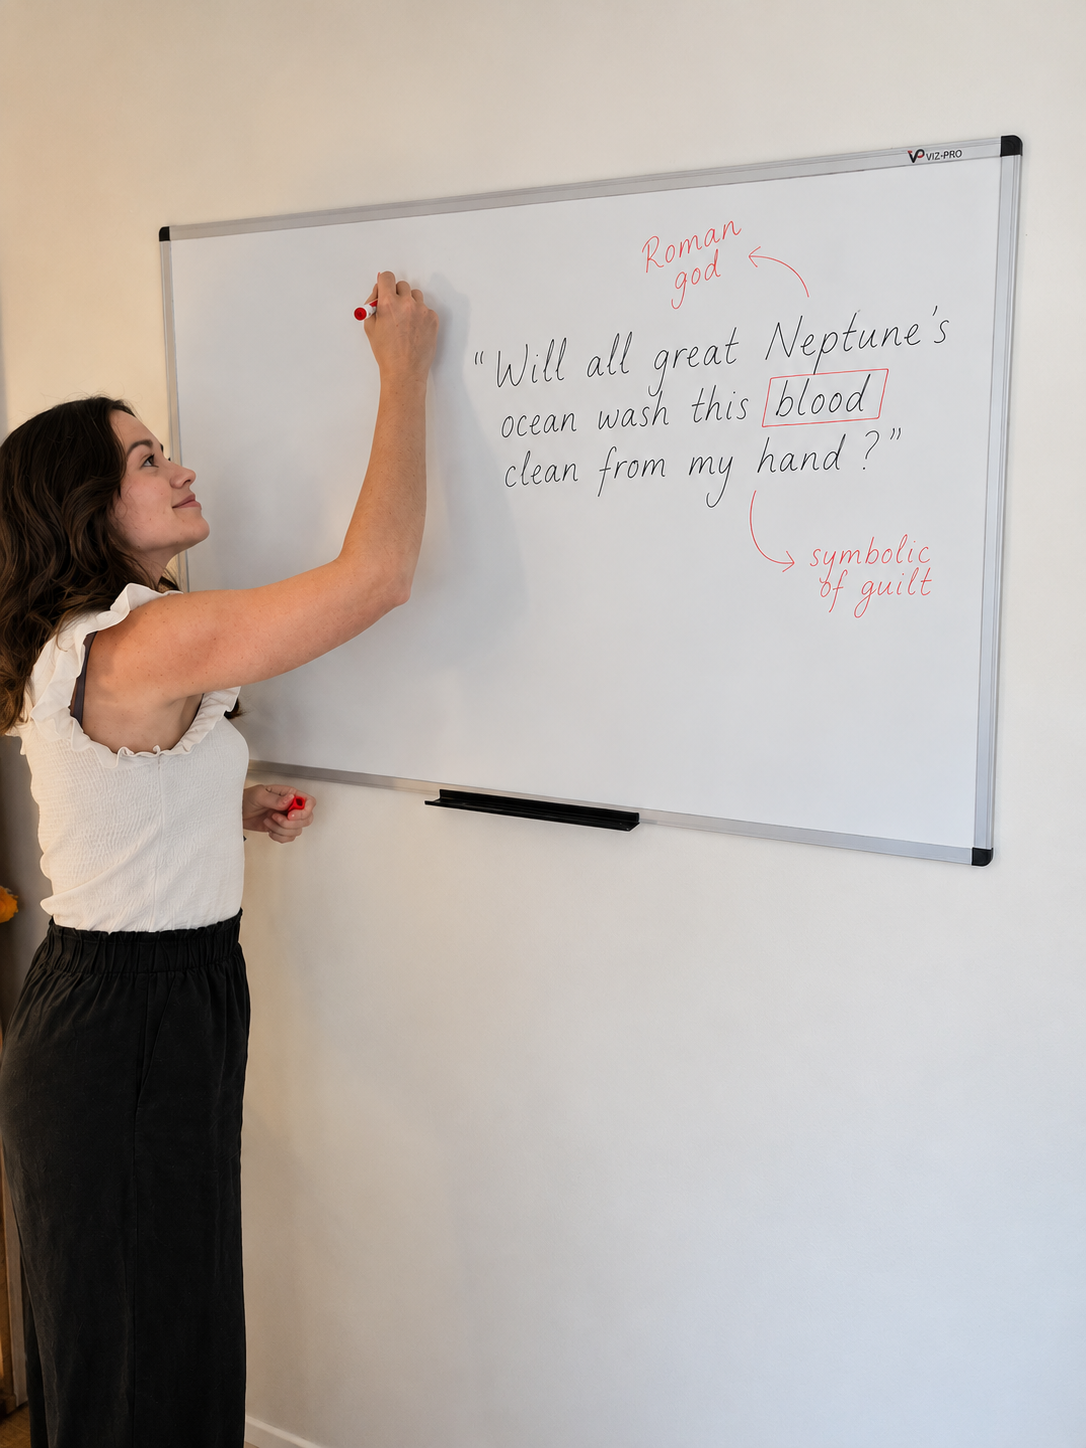 VP VIZ-PRO
Roman
god
“Will all great Neptune's
ocean wash this blood
clean from my hand?”
symbolic
of guilt